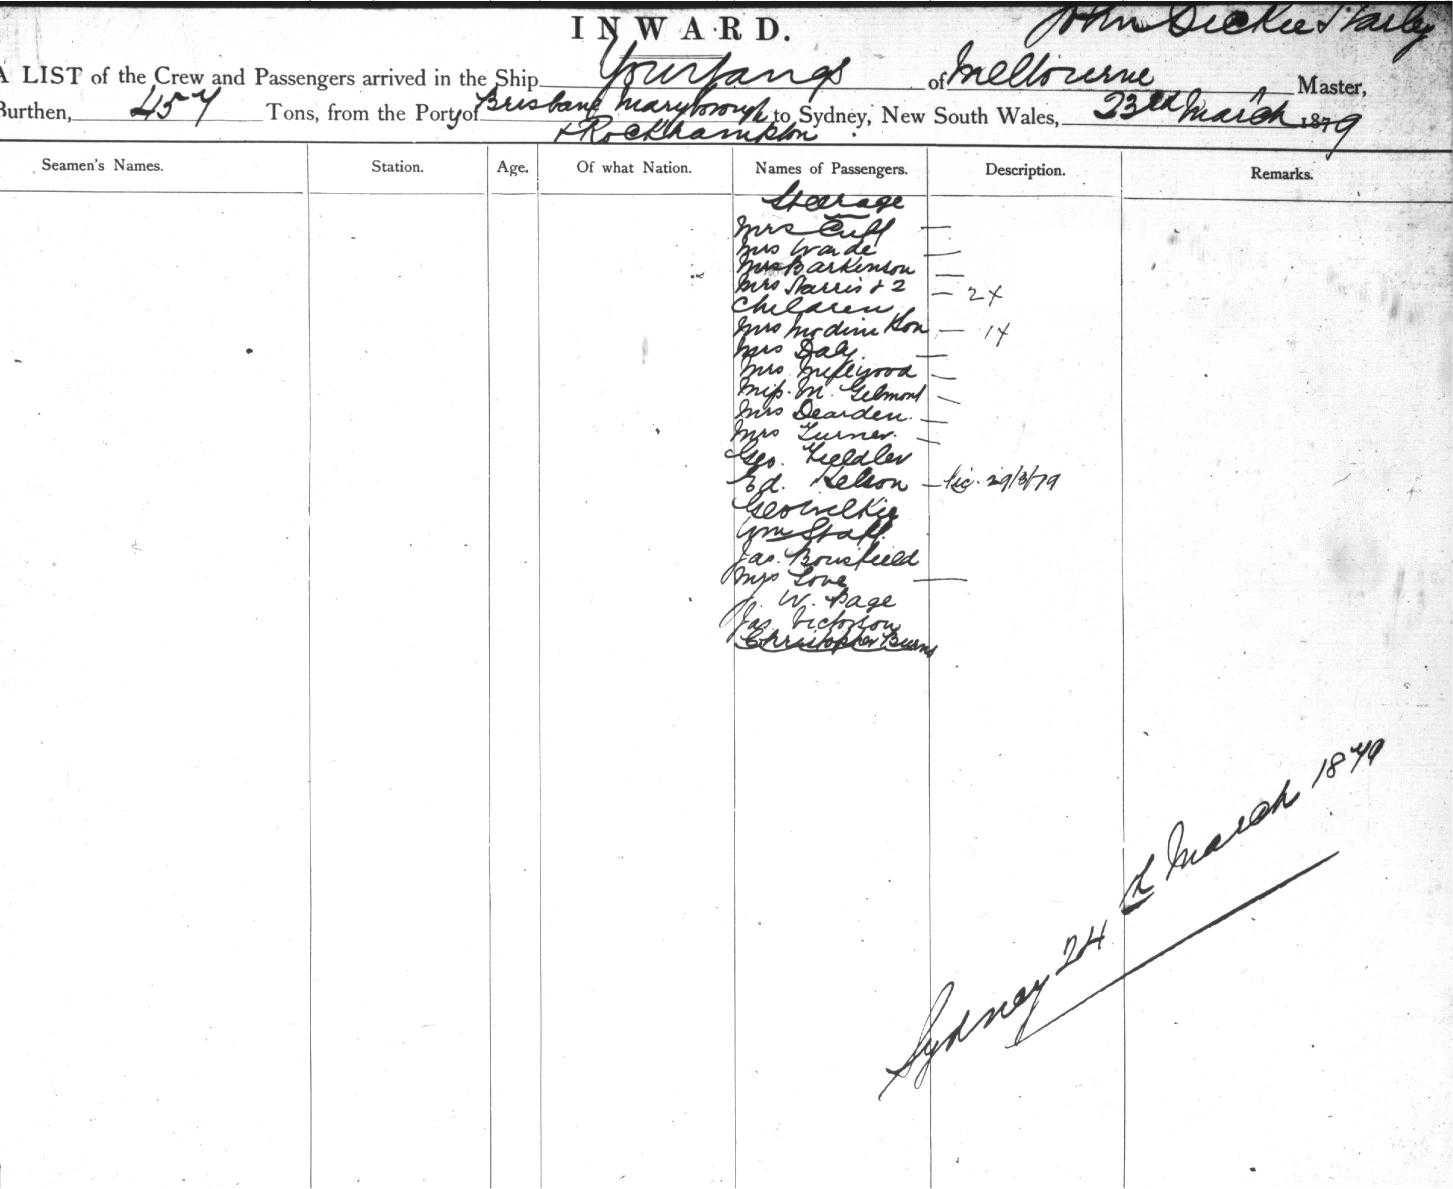 INWARD.
John Dickie
A LIST of the Crew and Passengers arrived in the Ship You Yangs of Melbourne Master,
Burthen, 457 Tons, from the Port of Brisbane Maryborough to Sydney, New South Wales, 23rd March 1879
& Rockhampton
Seamen's Names. Station. Age. Of what Nation. Names of Passengers. Description. Remarks.
Steerage
Mrs Cuff —
Mrs Warde —
Mrs Barkinson —
Mrs Harris & 2 — 2 X
Children
Mrs & son — 1 X
Mrs Daly —
Mrs —
Miss M. —
Mrs Dearden —
Mrs Turner —
Geo. Fieldler
Ed. — 29/3/79
Geo Wilkie
Wm Staff
Jas. Bousfield
Mrs Love —
J. W. Page
Jas
Christopher Burns
Sydney 24th March 1879